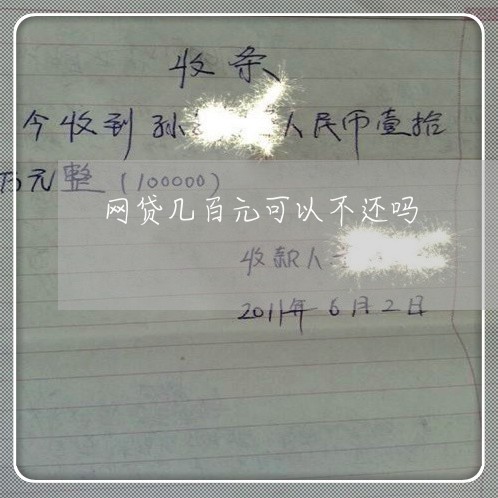 收条
今收到孙 人民币壹拾
万元整（100000）
网贷几百元可以不还吗
收款人
2011年6月2日